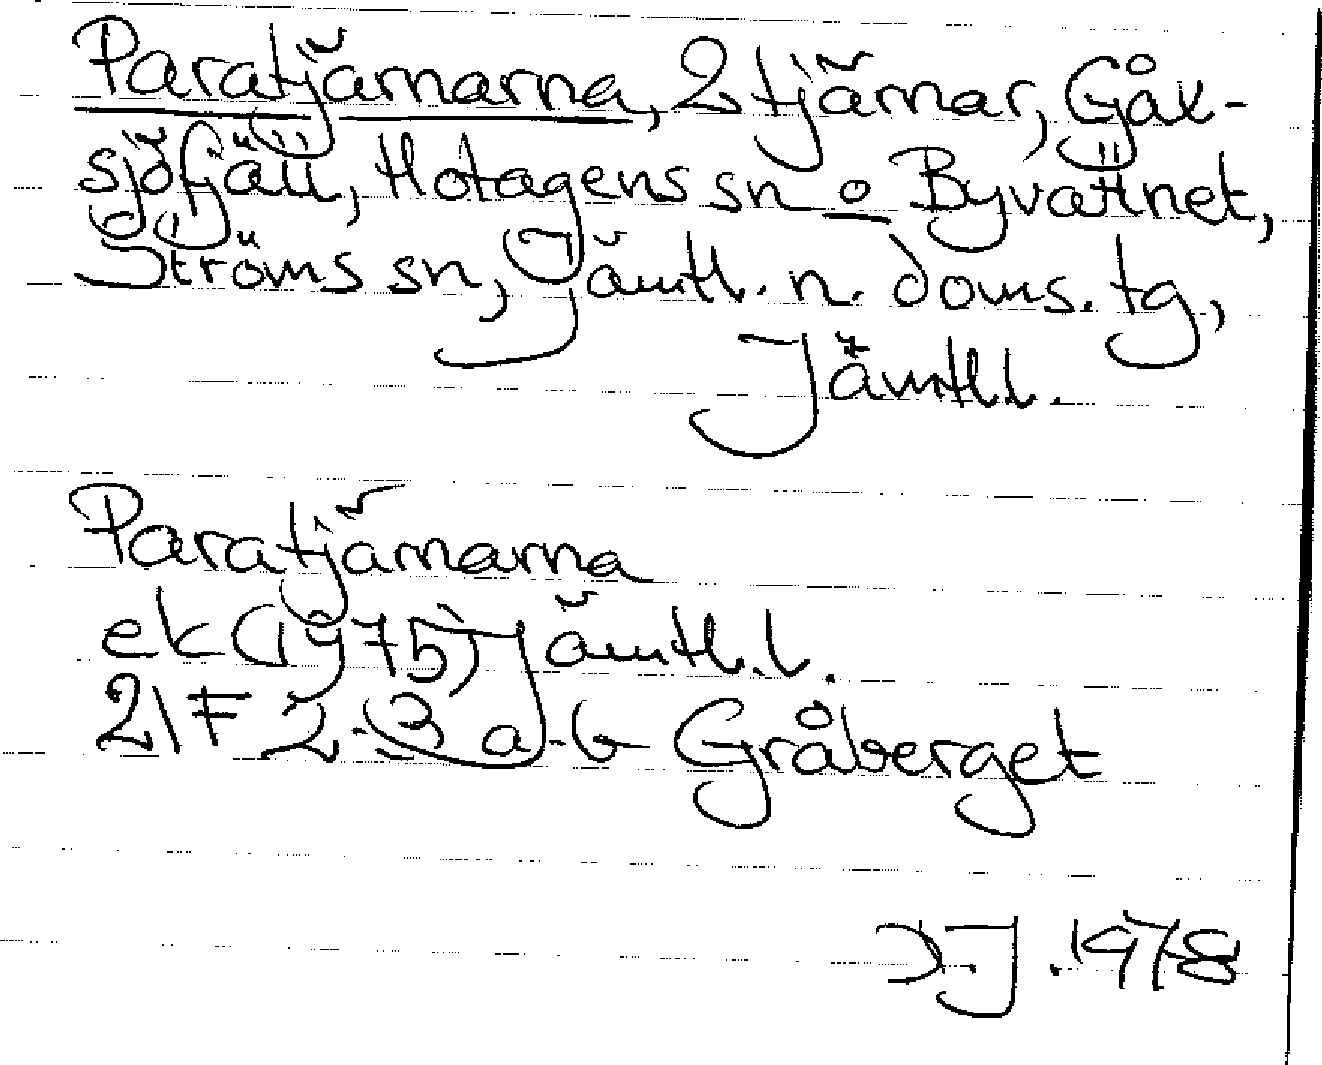 Paratjärnarna, 2 tjärnar, Gåx-
sjöfjäll, Hotagens sn o Byvattnet,
Ströms sn, Jämtl. n. doms. tg,
Jämtl.l.
Paratjärnarna
ek (1975) Jämtl.l.
21F 2-3 a-b Gråberget
D.J. 1978